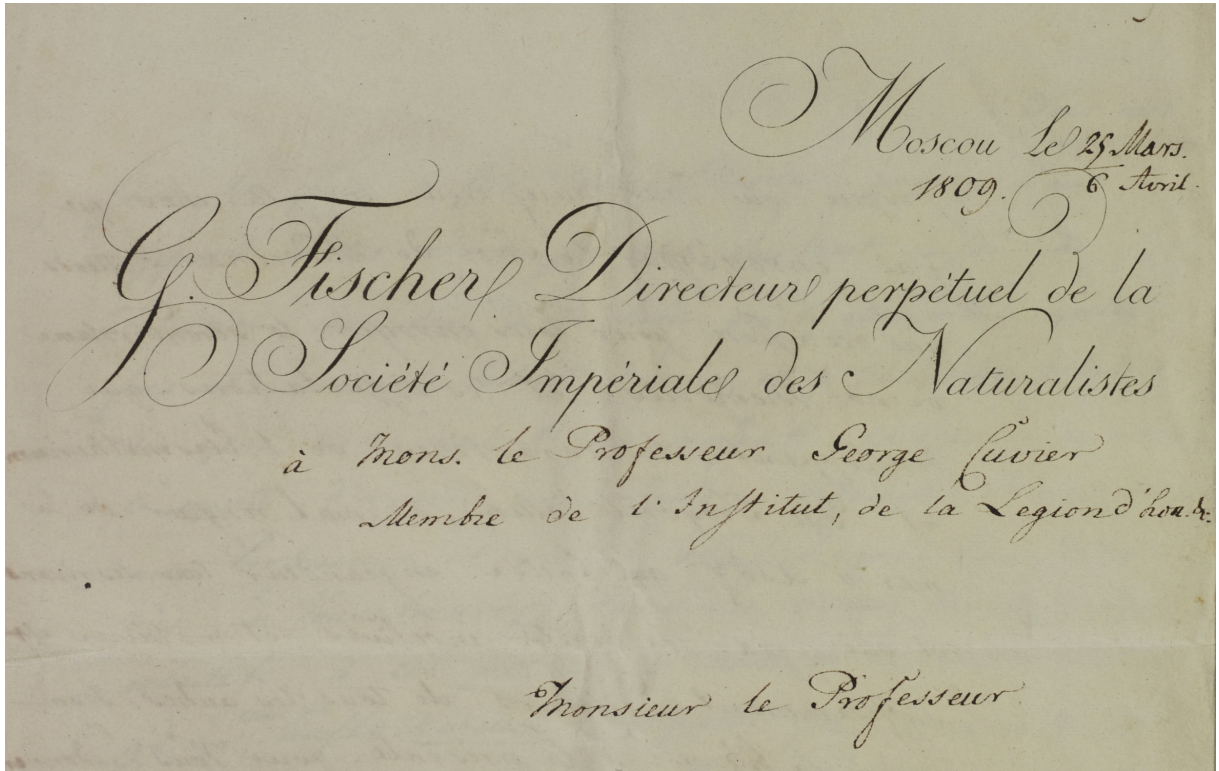 Moscou Le 25 Mars.
1809. 6 Avril.
G. Fischer Directeur perpétuel de la
Société Impériale des Naturalistes
à Mons. le Professeur George Cuvier
Membre de l'Institut, de la Legion d'hon. &.
Monsieur le Professeur